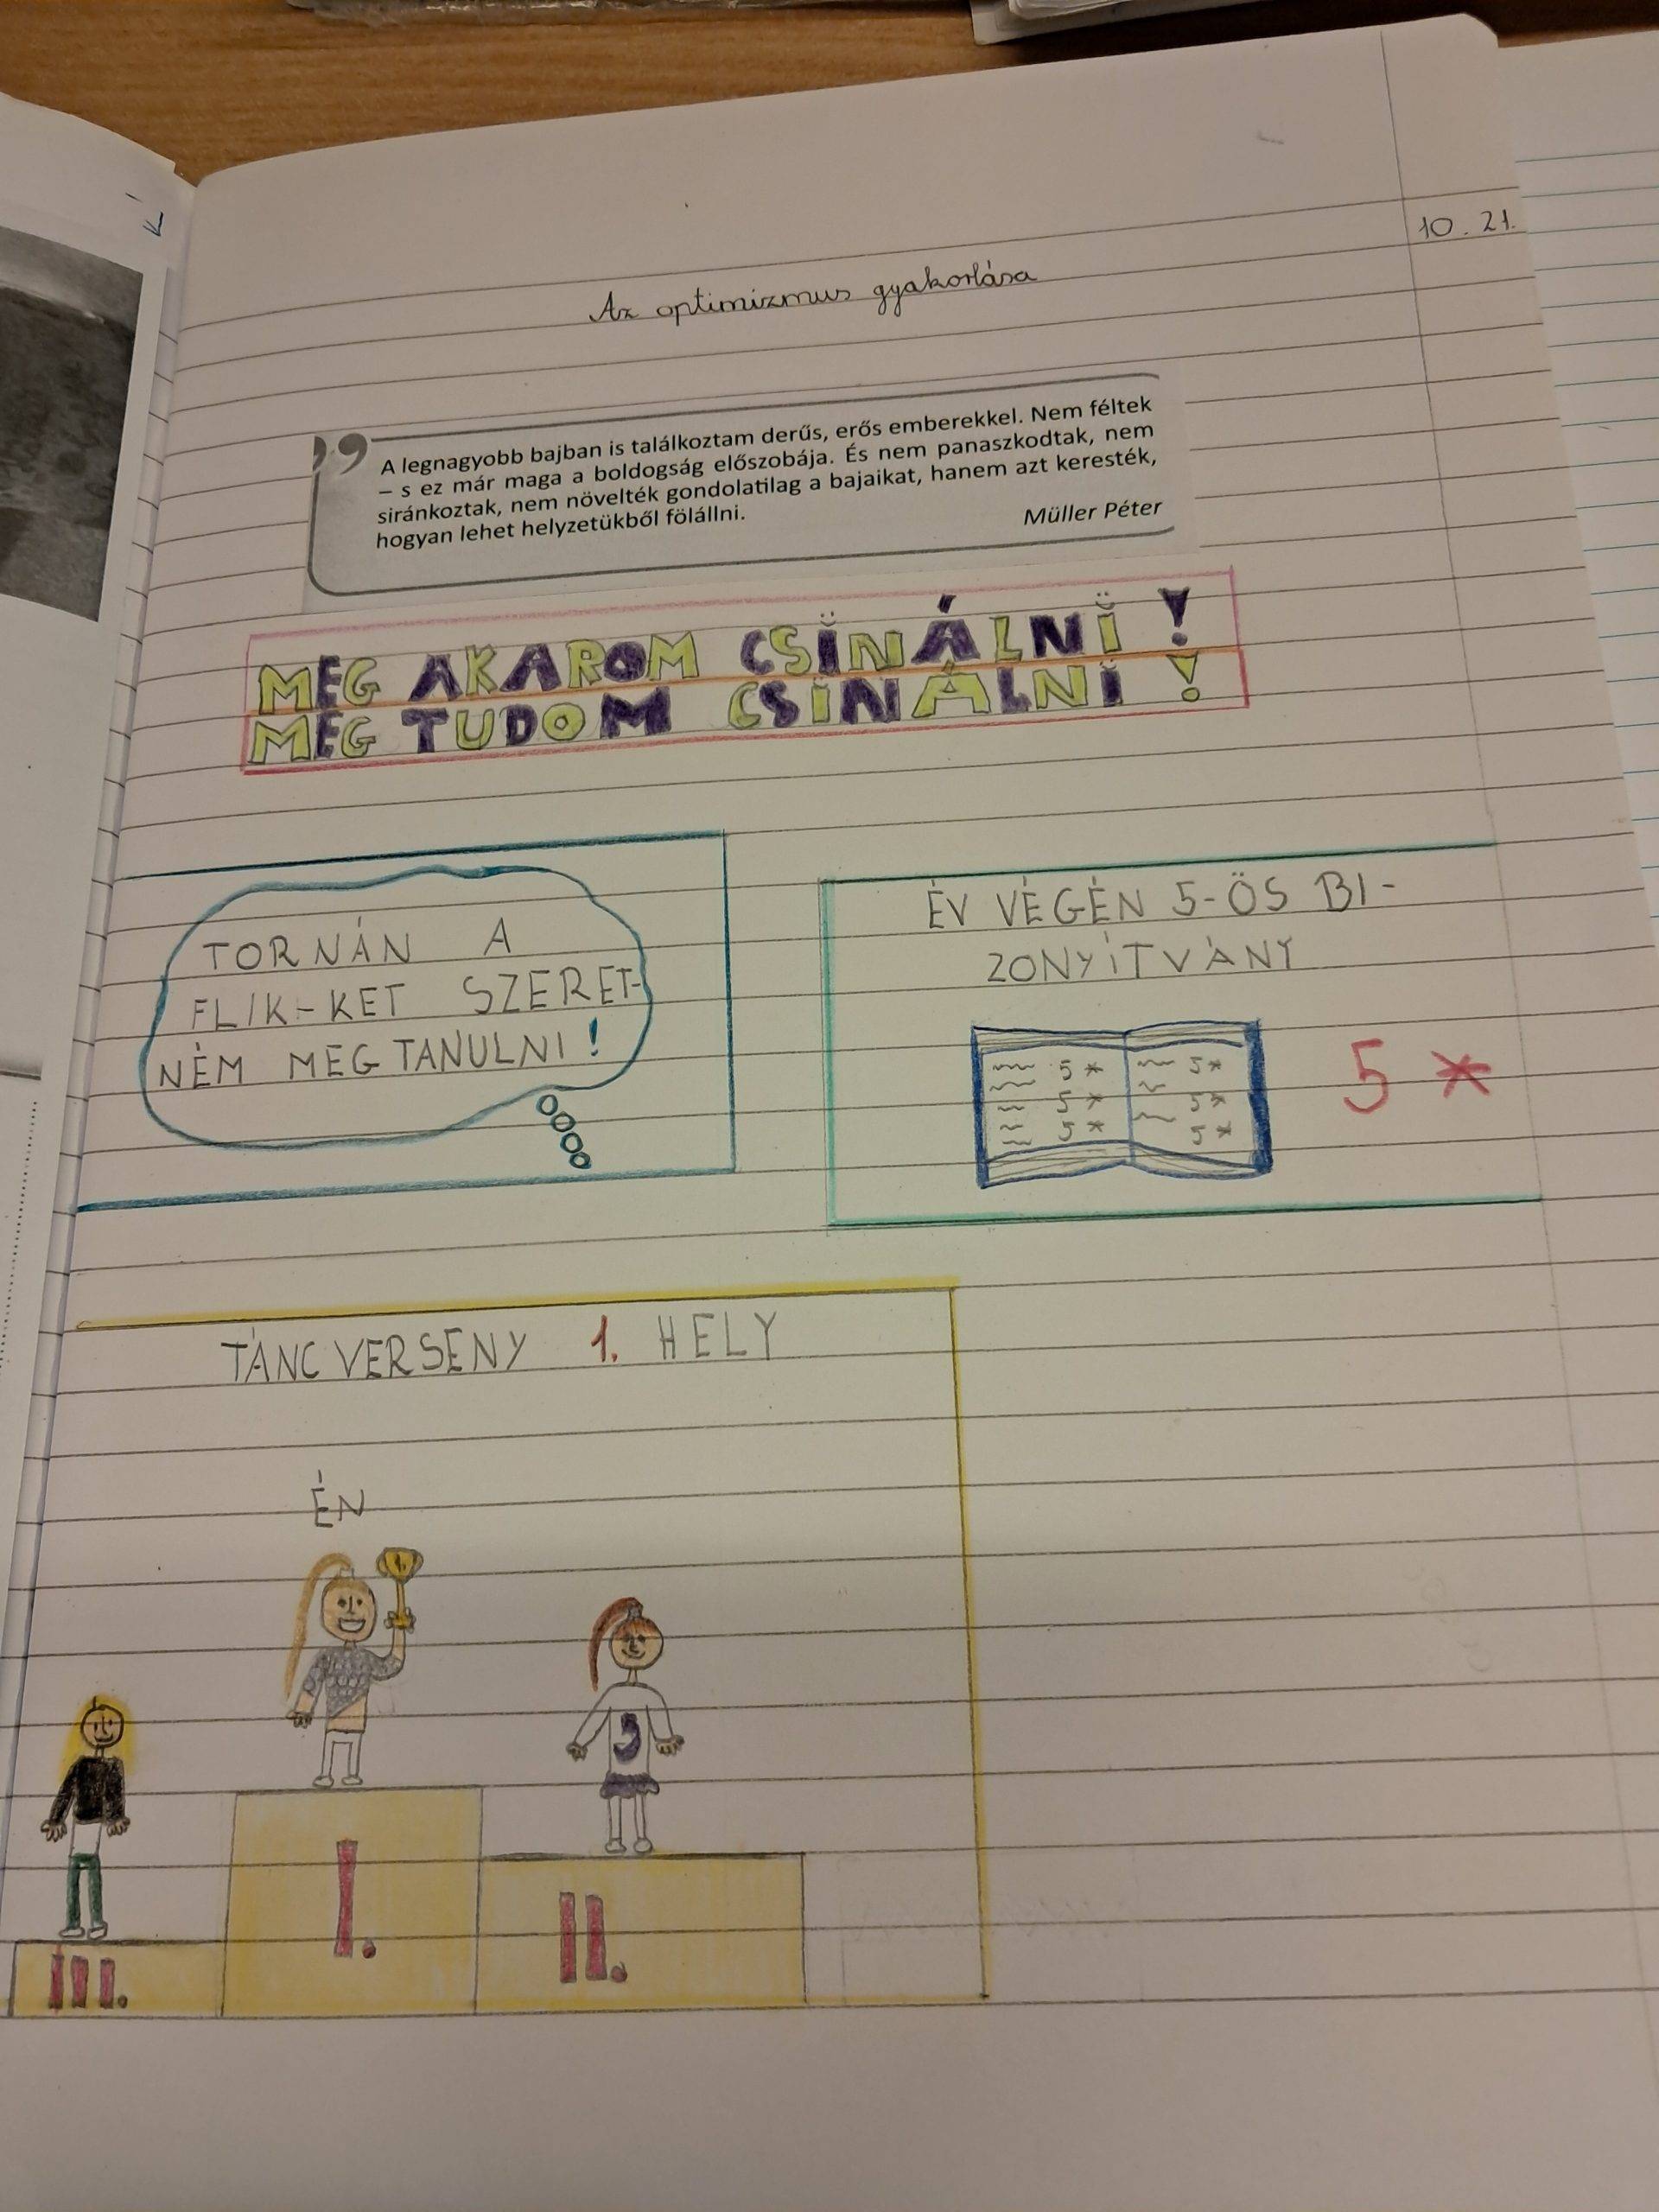 10. 21.
Az optimizmus gyakorlása
A legnagyobb bajban is találkoztam derűs, erős emberekkel. Nem féltek
– s ez már maga a boldogság előszobája. És nem panaszkodtak, nem
siránkoztak, nem növelték gondolatilag a bajaikat, hanem azt keresték,
hogyan lehet helyzetükből fölállni.
Müller Péter
MEG AKAROM CSINÁLNI!
MEG TUDOM CSINÁLNI!
TORNÁN A
FLIK-KET SZERET-
NÉM MEGTANULNI!
ÉV VÉGÉN 5-ÖS BI-
ZONYÍTVÁNY
5* 5*
5* 5*
5* 5*
5*
TÁNCVERSENY 1. HELY
ÉN
1
5
I.
II.
III.